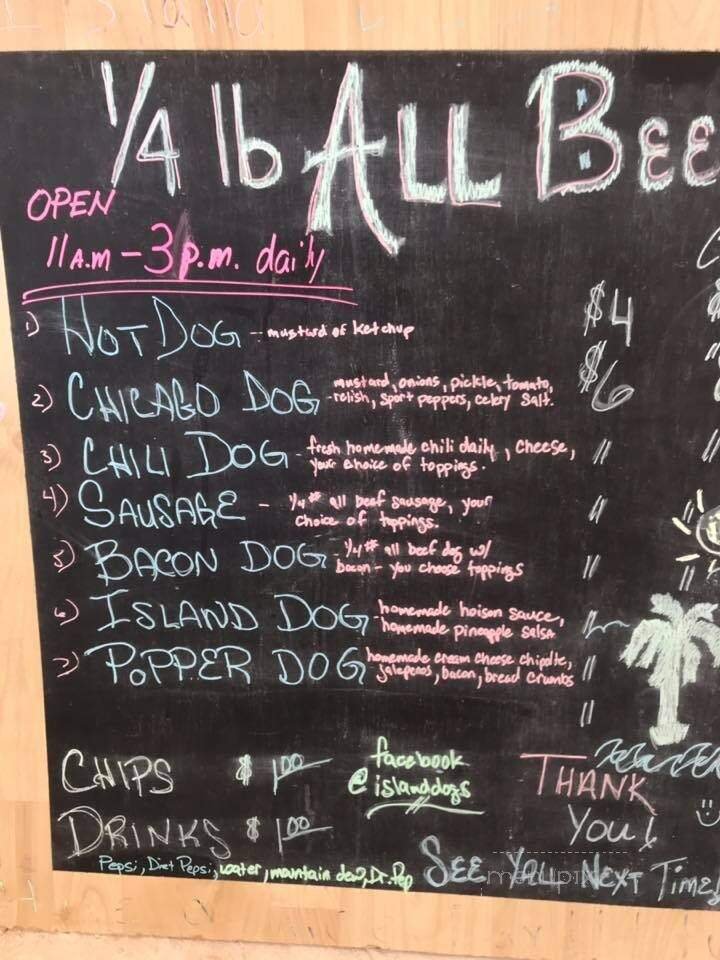 1/4 lb ALL BEE
OPEN
11 A.M - 3 p.m. daily
1) HOT DOG -- mustard or ketchup $4
2) CHICAGO DOG mustard, onions, pickle, tomato, $6
-relish, sport peppers, celery salt.
3) CHILI DOG - fresh homemade chili daily, cheese, "
your choice of toppings.
4) SAUSAGE - 1/4# all beef sausage, your "
choice of toppings.
5) BACON DOG - 1/4# all beef dog w/ "
bacon - you choose toppings
6) ISLAND DOG - homemade hoison sauce, "
homemade pineapple salsa
7) POPPER DOG homemade cream cheese chipolte, "
jalepenos, bacon, bread crumbs "
CHIPS $1.00
facebook
@islanddogs
DRINKS $1.00
Pepsi, Diet Pepsi, water, mountain dew, Dr. Pep
THANK
YOU!
SEE YOU NEXT TIME!